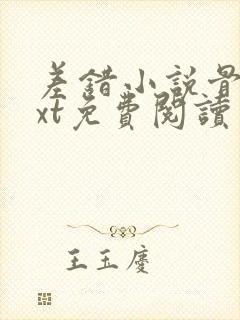 差錯小説骨
xt免費閱讀
王玉慶